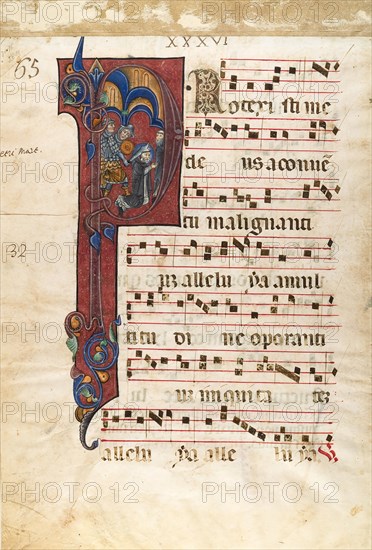 XXXVI
55
Rotexi sti me
de us a conuē
32
tu malignanti
um allelu ya a mul
titu di ne operanti
um iniquita tez
allelu ya alle lu ya
PHOTO12